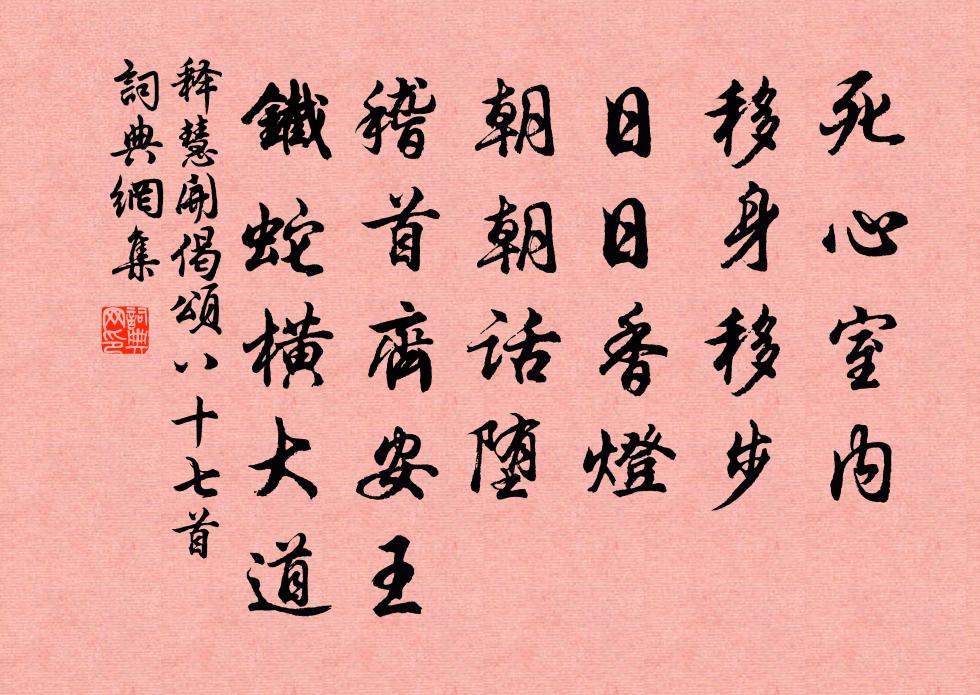 死心室内
移身移步
日日香燈
朝朝話堕
稽首齊安王
鐵蛇橫大道
释慧開偈頌八十七首
詞典網集
詞典网印